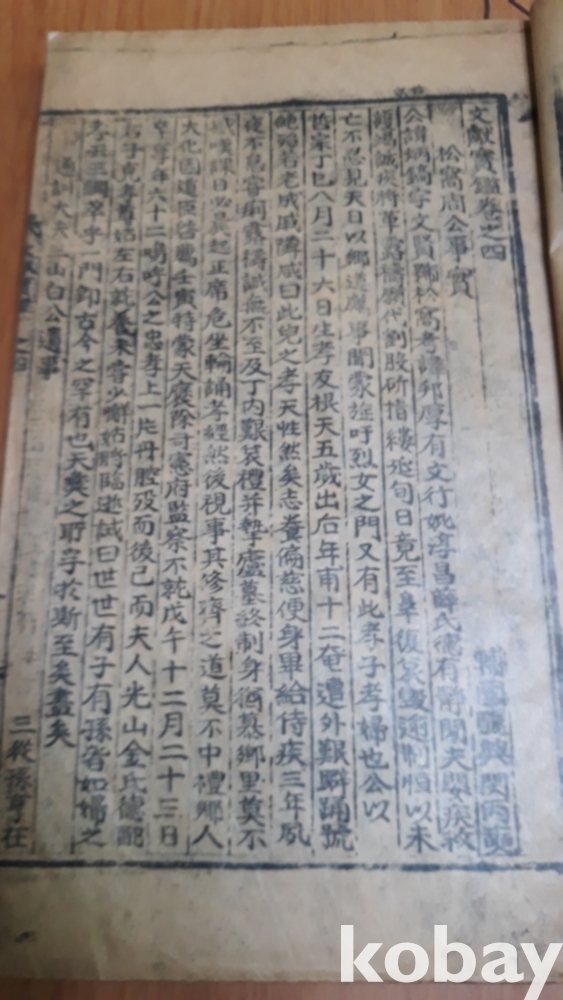 文獻寶鑑卷之四
松窩周公事實
公諱炳鎬字文賢號松窩考諱邦厚有文行妣淳昌薛氏德有閨夫嬰疾救
誠疾將革露禱願代割股斫指縷延旬日竟至皐復哀毁逾制恒以未
亡不忍見天日以鄕道薦事聞蒙旌吁烈女之門又有此孝子孝婦也公以
哲宗丁巳八月二十六日生孝友根天五歲出后年甫十二奄遭外艱擗踊號
老戚戚隣咸曰此兒之孝天性然矣志養偏慈便身畢給侍疾三年夙
夜不怠露禱誠無不至及丁內艱哀禮幷摯廬墓終制身猶慕鄕里莫不
日必晨起正席危坐輪誦孝經然後視事其修齊之道莫不中禮鄕人
大化因道臣啓薦壬寅特蒙天慶除司憲府監察不乾戊午十二月二十三日
卒享年六十二嗚呼公之忠孝上一片丹腔歿而後已而夫人光山金氏德配
君子貞孝尊姑左右就養未嘗少懈姑將臨逝試曰世世有子有孫皆如婦之
孝云三綱萃于一門卽古今之罕有也天奭之耶孚於斯至矣盡矣
三從孫亨在
通訓大夫山白公遺事
kobay